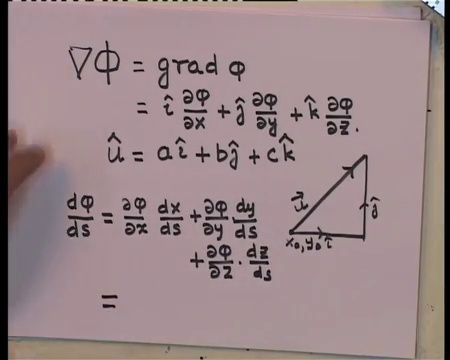 ∇φ = grad φ
= î ∂φ/∂x + ĵ ∂φ/∂y + k̂ ∂φ/∂z.
û = aî + bĵ + ck̂
dφ/ds = ∂φ/∂x dx/ds + ∂φ/∂y . dy/ds
+ ∂φ/∂z . dz/ds
=
u⃗
ĵ
x₀, y₀ î